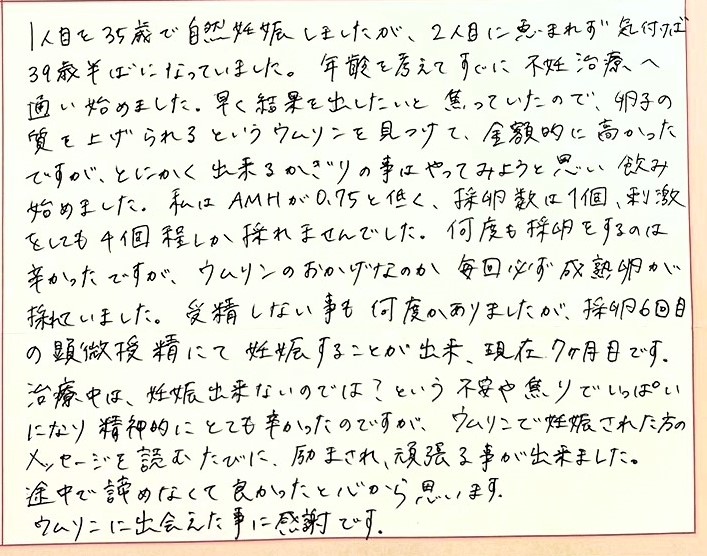 1人目を35歳で自然妊娠しましたが、2人目に恵まれず気付けば
39歳半ばになっていました。年齢を考えてすぐに不妊治療へ
通い始めました。早く結果を出したいと焦っていたので、卵子の
質を上げられるというウムリンを見つけて、金額的に高かった
ですが、とにかく出来るかぎりの事はやってみようと思い飲み
始めました。私はAMHが0.75と低く、採卵数は1個、刺激
をしても4個程しか採れませんでした。何度も採卵をするのは
辛かったですが、ウムリンのおかげなのか毎回必ず成熟卵が
採れていました。受精しない事も何度かありましたが、採卵6回目
の顕微授精にて妊娠することが出来、現在7ヶ月目です。
治療中は、妊娠出来ないのでは?という不安や焦りでいっぱい
になり精神的にとても辛かったのですが、ウムリンで妊娠された方の
メッセージを読むたびに、励まされ、頑張る事が出来ました。
途中で諦めなくて良かったと心から思います。
ウムリンに出会えた事に感謝です。